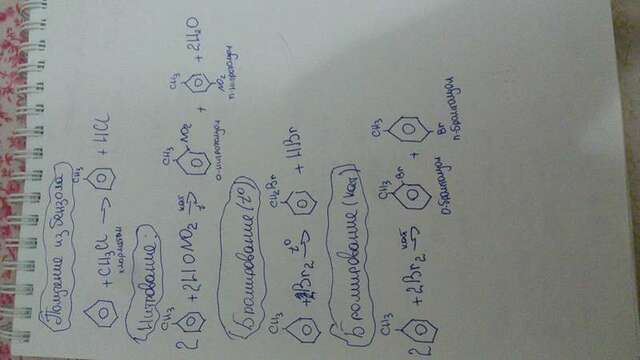 Получение из бензола
CH3
+ CH3Cl → + HCl
хлорметан
Нитрование:
CH3 CH3 CH3
2 + 2HONO2 кат t° → NO2 + NO2 + 2H2O
о-нитротолуол п-нитротолуол
Бромирование (t°)
CH3 CH2Br
+ Br2 t° → + HBr
Бромирование (кат)
CH3 CH3 CH3
2 + 2Br2 кат → Br + Br
о-бромтолуол п-бромтолуол